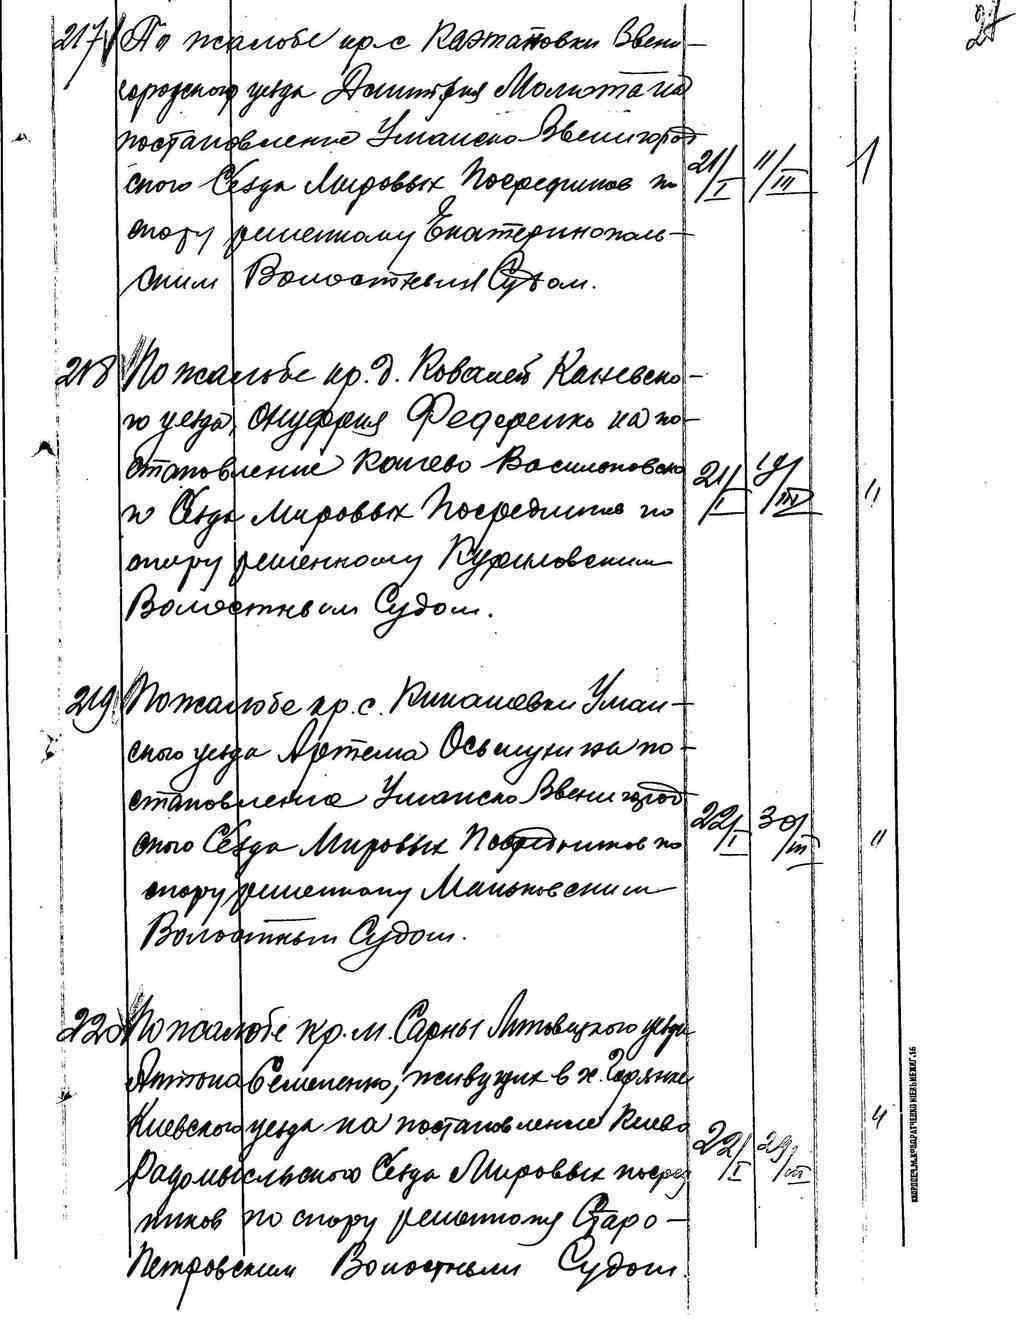 27
217 По жалобе кр. с. Каэтановки Звени-
городского уезда Дмитрия Малюта на
постановление Уманско Звенигород
ского Сезда Мировых Посредников по
спору решенному Екатеринополь-
ским Волостным Судом.
21/I 11/III 1
218 По жалобе кр. д. Ковалей Каневско-
го уезда, Онуфрия Федоренко на по-
становление Канево Васильковско
го Сезда Мировых Посредников по
спору решенному Куриловским
Волостным Судом.
21/I 19/III "
219 По жалобе кр. с. Кишовки Уман-
ского уезда Артема на по-
становление Уманско Звенигород
ского Сезда Мировых Посредников по
спору решенному Маньковским
Волостным Судом.
22/I 30/III "
220 По жалобе кр. м. Сарны Липовецкого уезда
Антона Семененко, живущих в х.
Киевского уезда на постановление Киево
Радомысльского Сезда Мировых посред
ников по спору решенному Старо-
Петровским Волостным Судом.
22/I 29/III "